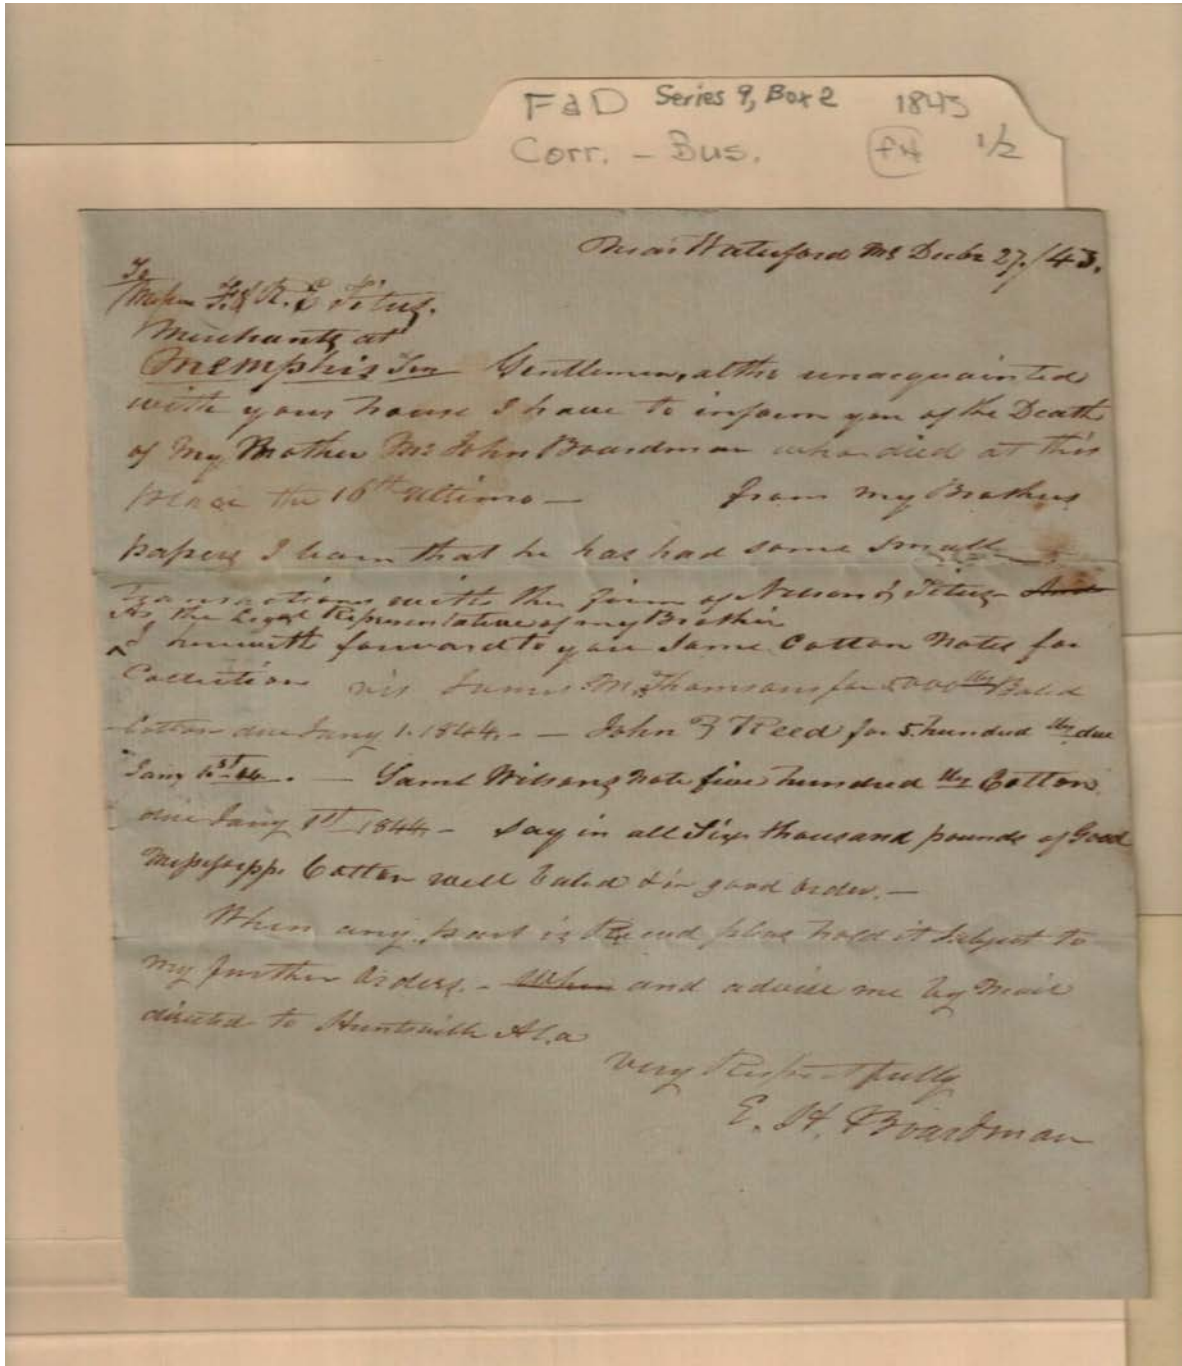 FaD Series 9, Box 2 1843
Corr. - Bus. 1/2
Near Waterford Ms Decbr 27/43.
To
Messrs F. & R. E Titus.
Merchants at
Memphis Ten Gentlemen, altho unacquainted
with your house I have to inform you of the Death
of My Brother Mr John Boardman who died at this
place the 16th ultimo — from my Brothers
papers I learn that he has had some small
transactions with the firm of Nelson & Titus And
As the Legal Representative of my Brother
I herewith forward to you some Cotton Notes for
Collection viz James M. Thomsons for 5000 lbs Baled
Cotton due Jany 1. 1844. - — John Reed for 5. hundred lbs due
Jany 1st 44. — Saml Wilsons Note five hundred lbs Cotton
due Jany 1st 1844 - Say in all Six thousand pounds of Good
Mississippi Cotton well baled & in good order. —
When any part is Recd please hold it subject to
my further Orders. - when and advise me by Mail
directed to Huntsville Ala
Very Respectfully
E. H. Boardman